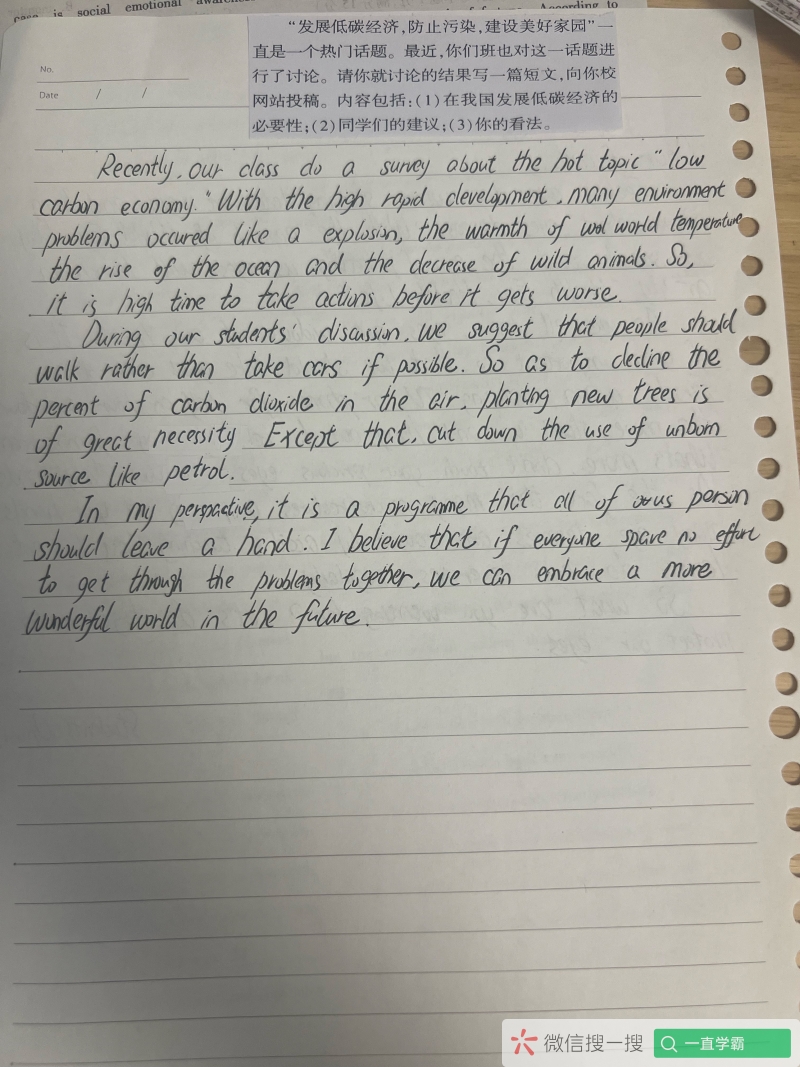 is social emotional
According to
No.
Date / /
“发展低碳经济,防止污染,建设美好家园”一
直是一个热门话题。最近,你们班也对这一话题进
行了讨论。请你就讨论的结果写一篇短文,向你校
网站投稿。内容包括:(1)在我国发展低碳经济的
必要性;(2)同学们的建议;(3)你的看法。
Recently, our class do a survey about the hot topic "low
carbon economy." With the high rapid clevelopment, many environment
problems occured like a explosion, the warmth of world temperature
the rise of the ocean and the decrease of wild animals. So,
it is high time to take actions before it gets worse.
During our students' discussion, we suggest that people should
walk rather than take cars if possible. So as to decline the
percent of carbon dioxide in the air, planting new trees is
of great necessity Except that, cut down the use of unborn
source like petrol.
In my perspactive, it is a programme that all of us person
should leave a hand. I believe that if everyone spare no effort
to get through the problems together, we can embrace a more
wonderful world in the future.
微信搜一搜
一直学霸